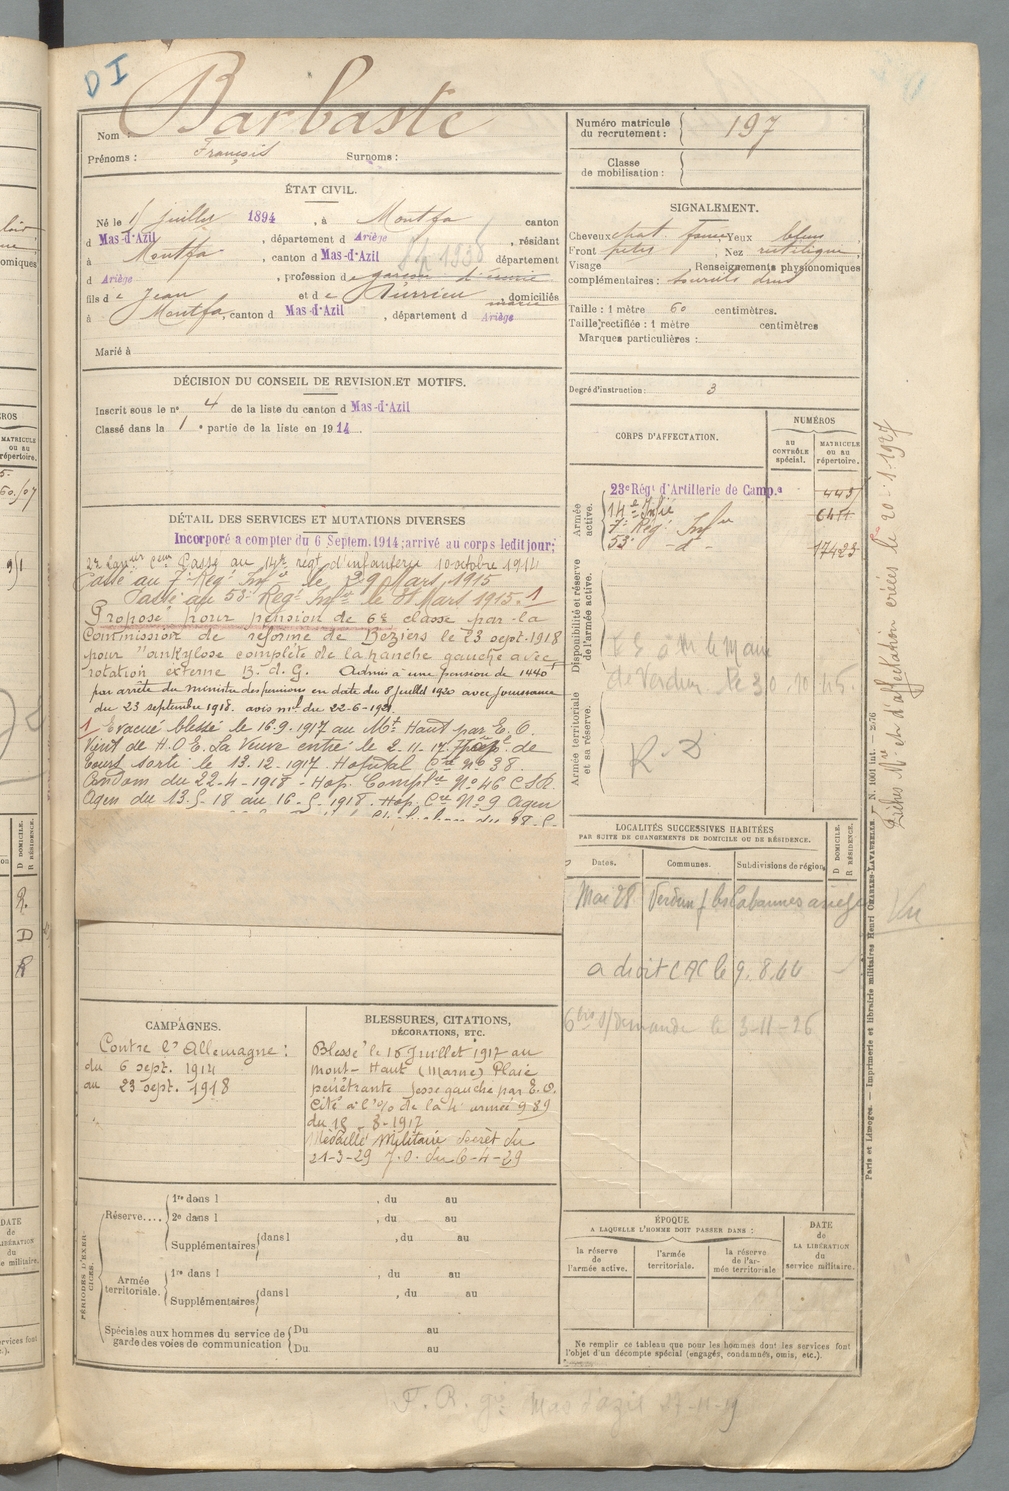 D I
Nom : Barbaste
Prénoms : François Surnoms :
Numéro matricule du recrutement : 197
Classe de mobilisation :
ÉTAT CIVIL.
Né le 1 juillet 1894, à Montfa canton
d Mas-d'Azil, département d Ariège, résidant
à Montfa, canton d Mas-d'Azil département
d Ariège, profession de garçon d'écurie
fils de Jean et de Durrieu Marie, domiciliés
à Montfa, canton d Mas-d'Azil, département d Ariège
Marié à
SIGNALEMENT.
Cheveux chat. foncé, Yeux bleus
Front petit, Nez rectiligne,
Visage Renseignements physionomiques
complémentaires : sourcils drus
Taille : 1 mètre 60 centimètres.
Taille rectifiée : 1 mètre centimètres
Marques particulières :
Degré d'instruction : 3
DÉCISION DU CONSEIL DE REVISION ET MOTIFS.
Inscrit sous le n° 4 de la liste du canton d Mas-d'Azil
Classé dans la 1e partie de la liste en 1914
CORPS D'AFFECTATION.
NUMÉROS
AU CONTRÔLE spécial.
MATRICULE ou au répertoire.
Armée active.
23e Régt d'Artillerie de Camp.e 445
14e Infie 6411
7e Régt Infie
53e -d- 17423
Disponibilité et réserve de l'armée active.
le Maire
de Verdun le 30.10.45.
Armée territoriale et sa réserve.
R.D
DÉTAIL DES SERVICES ET MUTATIONS DIVERSES
Incorporé a compter du 6 Septem. 1914; arrivé au corps ledit jour;
2e Passé au 14e régt d'infanterie 10 octobre 1914
Passé au 7e Régt Infie le 29 Mars 1915
Passé au 53e Régt Infie le 31 Mars 1915. 1
Proposé pour pension de 6e classe par la
Commission de réforme de Béziers le 23 sept. 1918
pour "ankylose complète de la hanche gauche avec
rotation externe B. d. G. Admis à une pension de 1440
par arrêté du ministre des pensions en date du 8 juillet 1920 avec jouissance
du 23 septembre 1918. avis mel du 22-6-1921.
1 Evacué blessé le 16.9.1917 au Mt Haut par E. O.
Vient de H.O.E. La Veuve entré le 2.11.17. Hopl de
Tours sorti le 13.12.1917. Hopital Cre No 38.
Condom du 22-4-1918 - Hop. Complre No 46
Agen du 13-5-18 au 16-5-1918. Hop. Cre No 9 Agen
LOCALITÉS SUCCESSIVES HABITÉES
PAR SUITE DE CHANGEMENTS DE DOMICILE OU DE RÉSIDENCE.
Dates. Communes. Subdivisions de région.
D DOMICILE.
R RÉSIDENCE.
Mai 28 Verdun p. les Cabannes ariège
a droit CAC le 9.8.66
6 bis s/demande le 3-11-26
Vu
CAMPAGNES.
Contre l'Allemagne :
du 6 sept. 1914
au 23 sept. 1918
BLESSURES, CITATIONS,
DÉCORATIONS, ETC.
Blessé le 16 Juillet 1917 au
mont-Haut (Marne) Plaie
pénétrante fesse gauche par E. O.
Cité à l'% de la 4e armée 989
du 18-8-1917
Médaille Militaire décrêt du
21-3-29 J.O. du 6-4-29
PÉRIODES D'EXERCICES.
Réserve....
1re dans l , du au
2e dans l , du au
Supplémentaires dans l , du au
Armée territoriale.
1re dans l , du au
Supplémentaires dans l , du au
Spéciales aux hommes du service de garde des voies de communication
Du au
Du au
ÉPOQUE
A LAQUELLE L'HOMME DOIT PASSER DANS :
la réserve de l'armée active.
l'armée territoriale.
la réserve de l'armée territoriale
DATE de LA LIBÉRATION du service militaire.
Ne remplir ce tableau que pour les hommes dont les services font
l'objet d'un décompte spécial (engagés, condamnés, omis, etc.).
Paris et Limoges. — Imprimerie et librairie militaires Henri CHARLES-LAVAUZELLE.
Fiches Mle et d'affectation créées le 20-1-1927
F. R. Mas d'azil